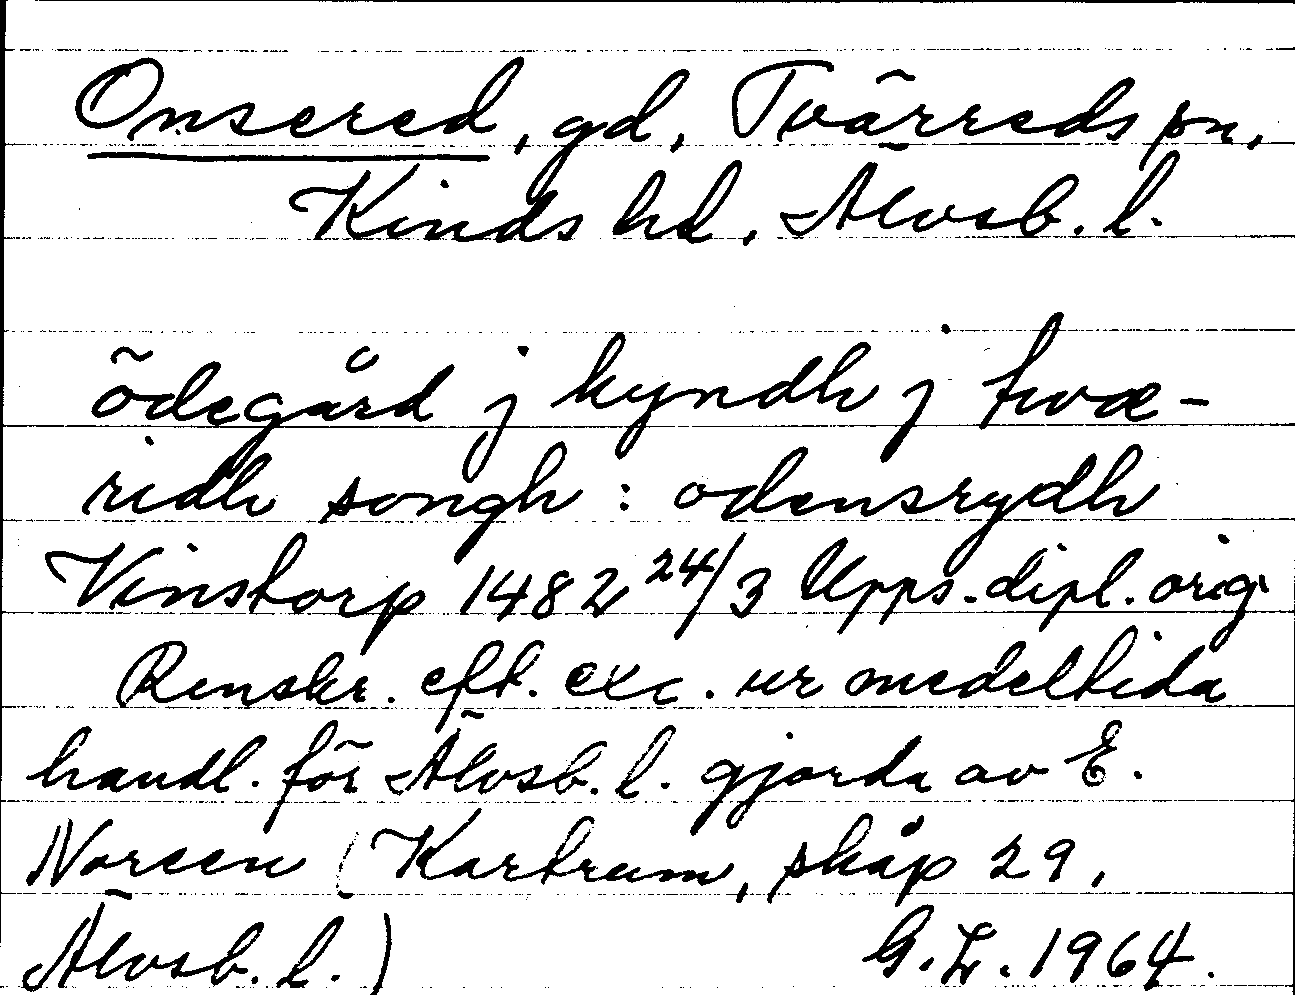 Onsered, gd, Tvärreds sn,
Kinds hd, Älvsb. l.
ödegård j kyndh j twæ-
ridh songh : odensrydh
Vinstorp 1482 24/3 Upps. dipl. orig.
Renskr. eft. exc. ur medeltida
handl. för Älvsb. l. gjorda av E.
Noreen (Kartrum, skåp 29,
Älvsb. l.) G. L. 1964.